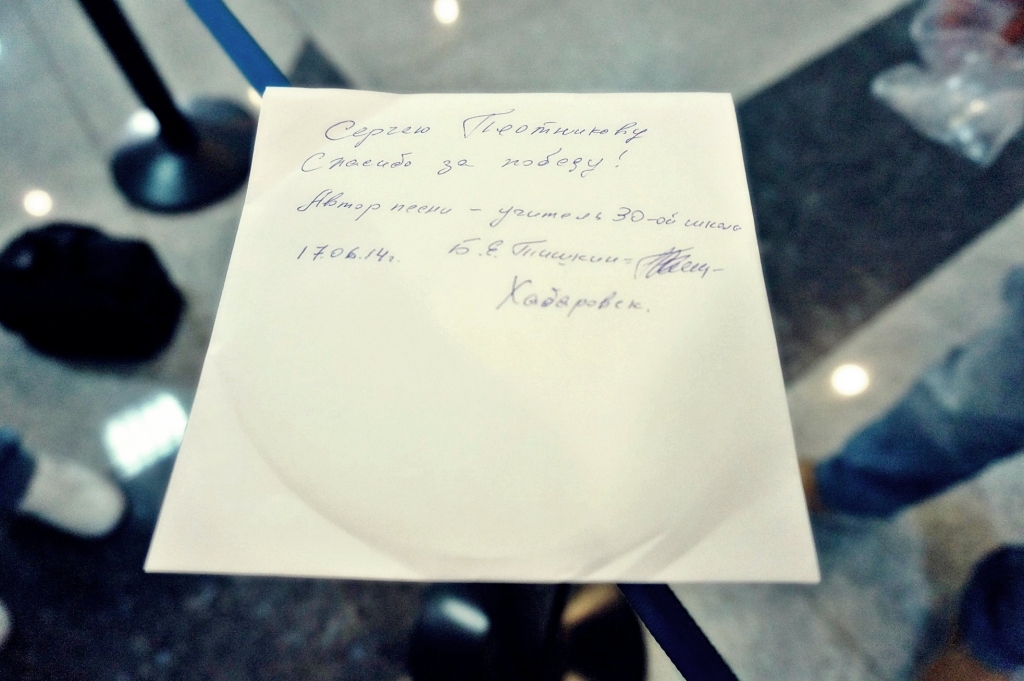 Сергею Плотникову
Спасибо за победу!
Автор песни - учитель 30-ой школы
17.06.14г. Б.Е. Тишкин =
Хабаровск.